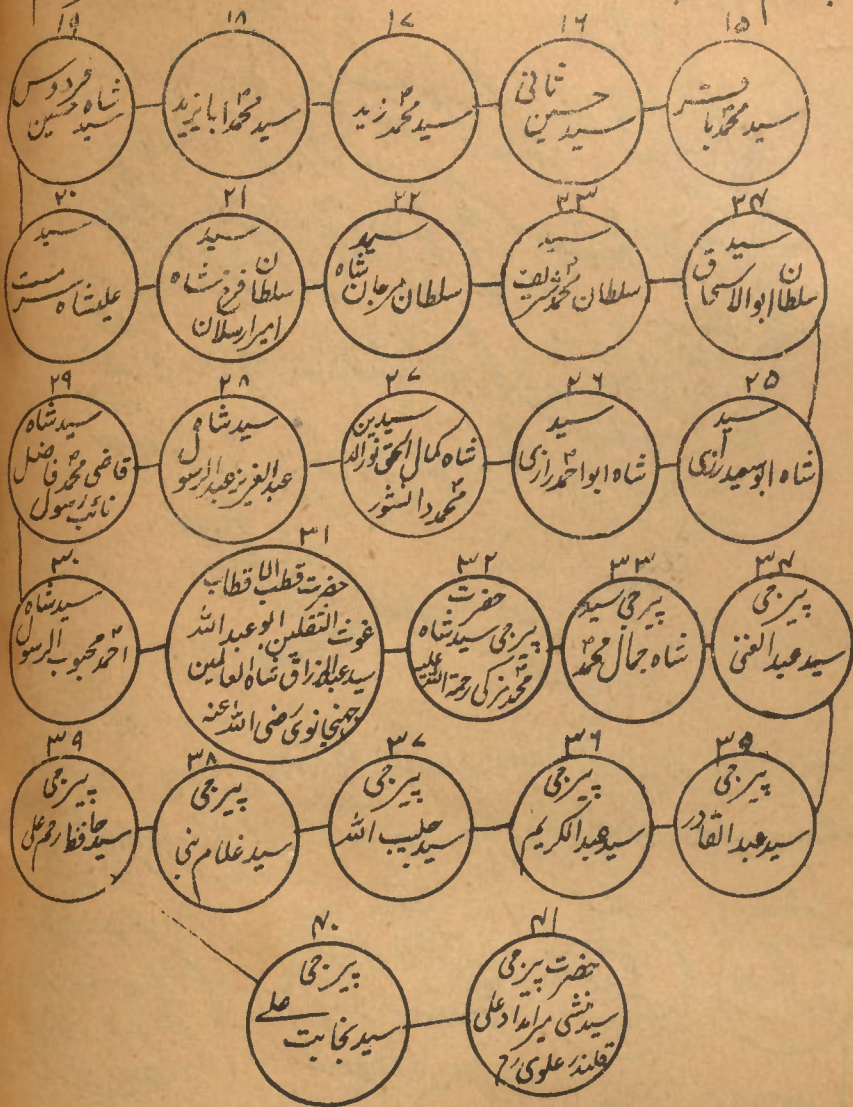 ۱۵
سید محمدؐ باقر
۱۶
سید حسین ثانی
۱۷
سید محمدؐ زید
۱۸
سید محمدؐ ابایزید
۱۹
سید شاہ حسین فردوس
۲۰
سید
علیشاہ سرمست
۲۱
سید
سلطان فرخ شاہ
امیر ارسلان
۲۲
سید
سلطان مرجان شاہ
۲۳
سید
سلطان محمدؐ شریف
۲۴
سید
سلطان ابوالاسحاق
۲۵
سید
شاہ ابوسعید رازی
۲۶
سید
شاہ ابو احمدؐ رازی
۲۷
سید
شاہ کمال الحق نورالدین
محمدؐ دانشور
۲۸
سید شاہ
عبدالعزیز عبدالرسول
۲۹
سید شاہ
قاضی محمدؐ فاضل
نائب رسول
۳۰
سید شاہ
احمدؐ محبوب الرسول
۳۱
حضرت قطب الاقطاب
غوث الثقلین ابو عبد اللہ
سید عبدالرزاق شاہ العالمین
جھنجانوی رضی اللہ عنہ
۳۲
حضرت
پیرجی سید شاہ
محمدؐ زکی رحمۃ اللہ علیہ
۳۳
پیرجی سید
شاہ جمال محمدؐ
۳۴
پیرجی
سید عبد الغنی
۳۵
پیرجی
سید عبد القادر
۳۶
پیرجی
سید عبد الکریم
۳۷
پیرجی
سید حبیب اللہ
۳۸
پیرجی
سید غلام
۳۹
پیرجی
سید حافظ رحم علی
۴۰
پیرجی
سید نجابت علے
۴۱
حضرت پیرجی
سید منشی میر امداد علی
قلندر علوی رح